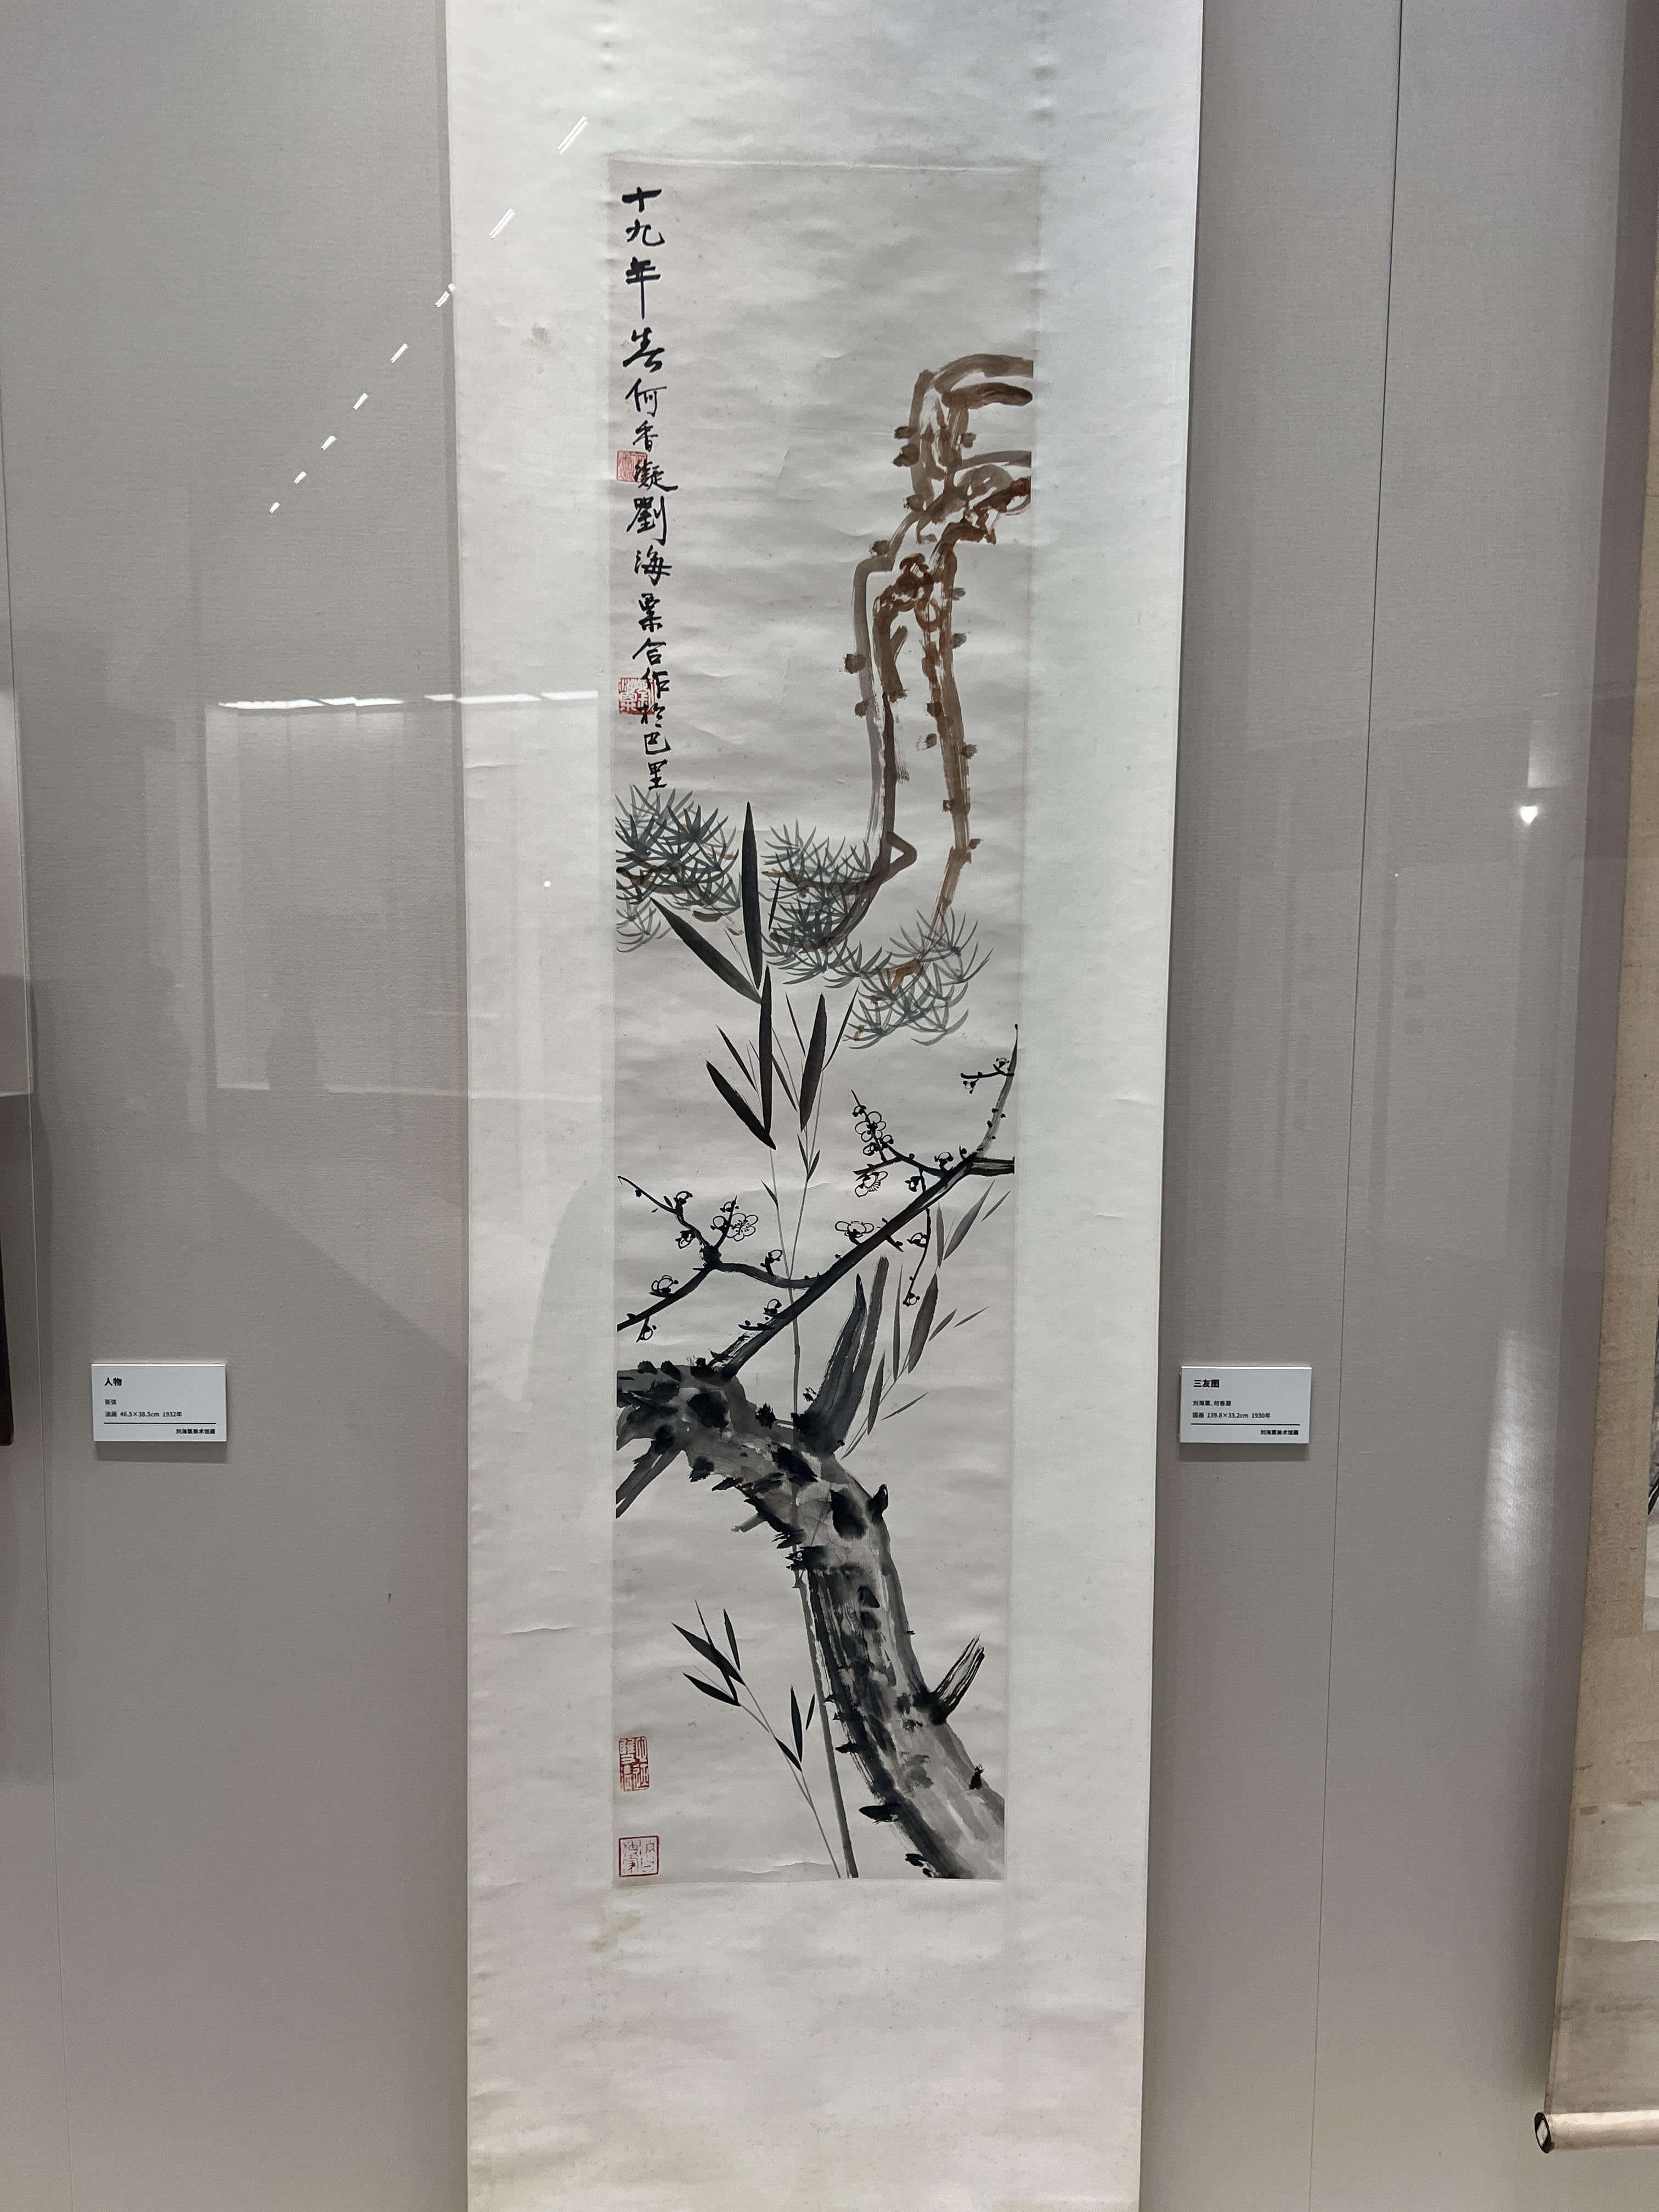 十九年春何香凝劉海粟合作於巴里
人物
张弦
油画 46.5×38.5cm 1932年
刘海粟美术馆藏
三友图
刘海粟、何香凝
国画 139.8×33.2cm 1930年
刘海粟美术馆藏